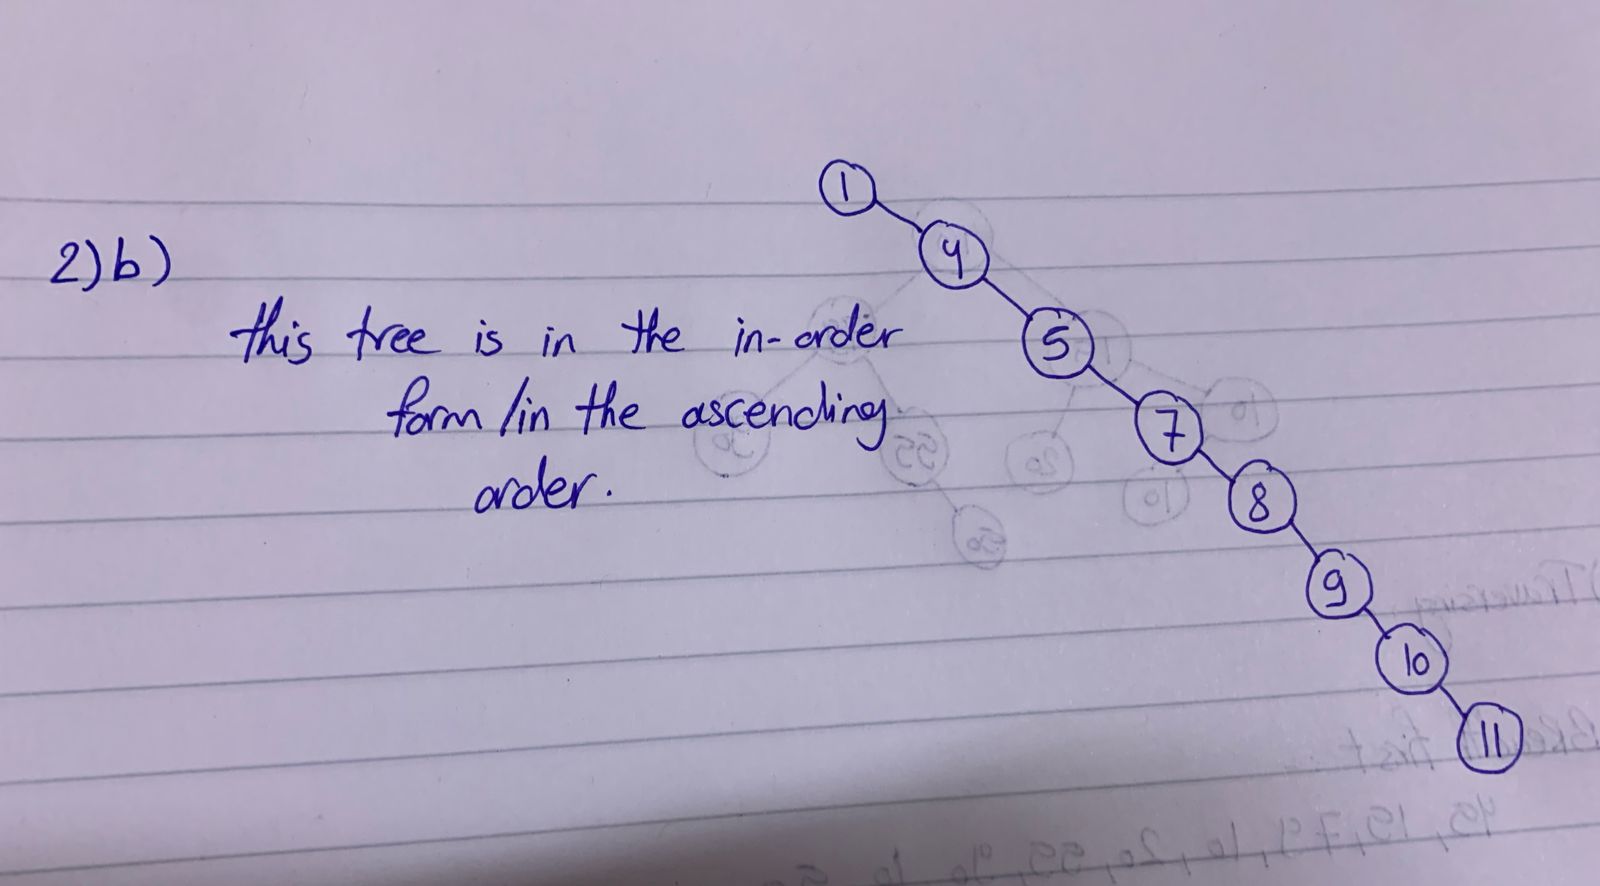 2)b)
this tree is in the in-order
form/in the ascending
order.
1
4
5
7
8
9
10
11